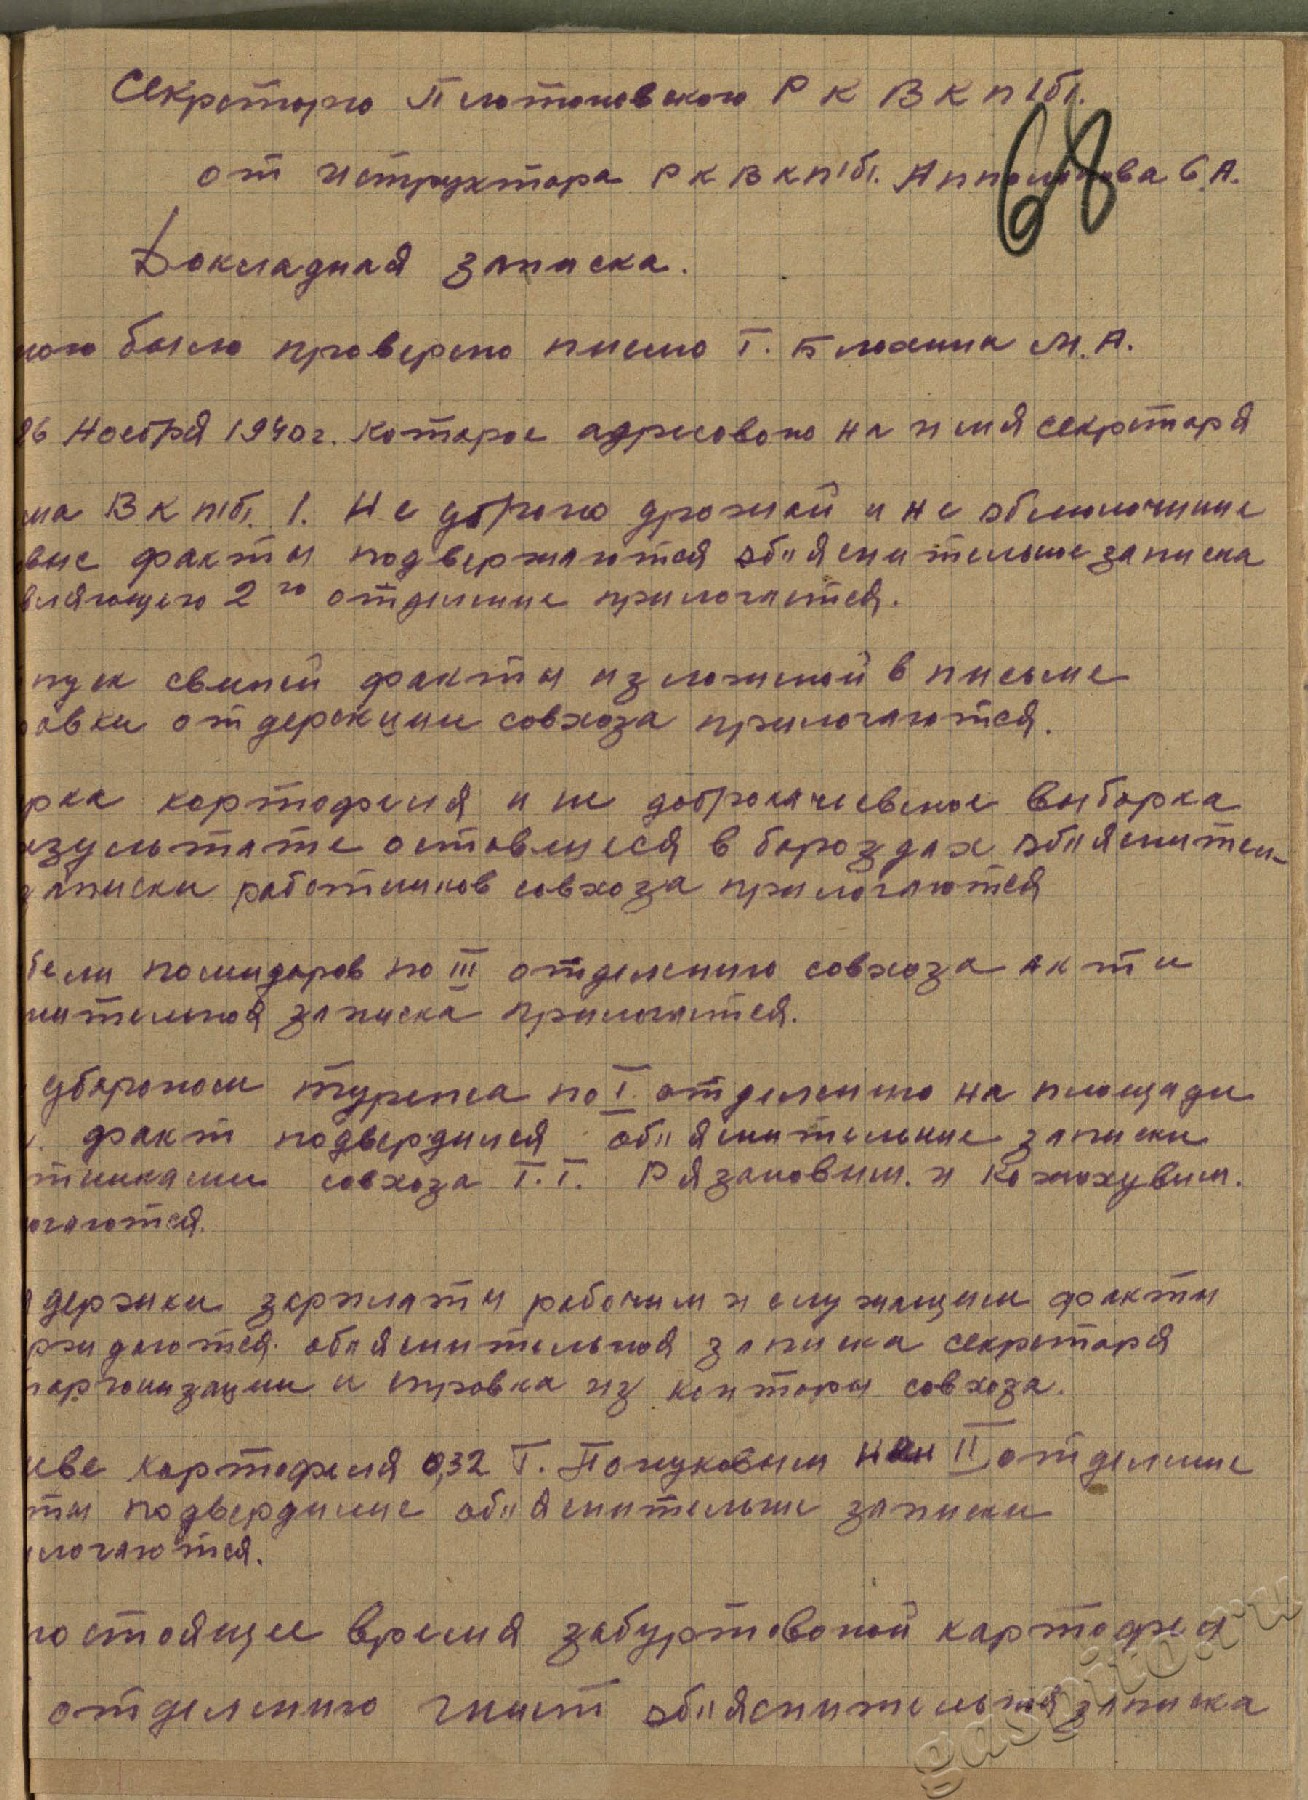 Секретарю Платоновского Р К В К П(б).
68
от иструктора РКВКП(б). Апполонова С.А.
Докладная записка.
мною было проверено писмо т. Блохина М.А.
26 Ноября 1940г. которое адресовано на имя секретаря
ма ВКП(б). 1. Не уброно дрожжей и не обмолочение
вые факты подвержаются обьяснительное записка
вляющего 2го отделение прилогается.
пуск свиней факты изложеной в письме
равки от дерекции совхоза прилогаются.
рка картофеля и не доброкачисвеное выборка
езультате оставшиеся в бороздах обьяснител-
записки работников совхоза прилогаются
бели помидоров по III отделению совхоза акт и
нительная записка прилогается.
по I. отделению на площади
факт подвердился обьяснительные записки
тниками совхоза т.т. Рязановым. и Кожохувым.
огаются.
держки зарплаты рабочим и служащим факты
рждаются. обьяснительная записка секретаря
парторгонизации и справка из конторы совхоза.
севе картофеля 0,32 т. II отделение
ты подвердилис, обьяснительны записки
илогаются.
ностоящее время забуртованой картофел
отделению гниет обьяснительная записка
gaspito.ru